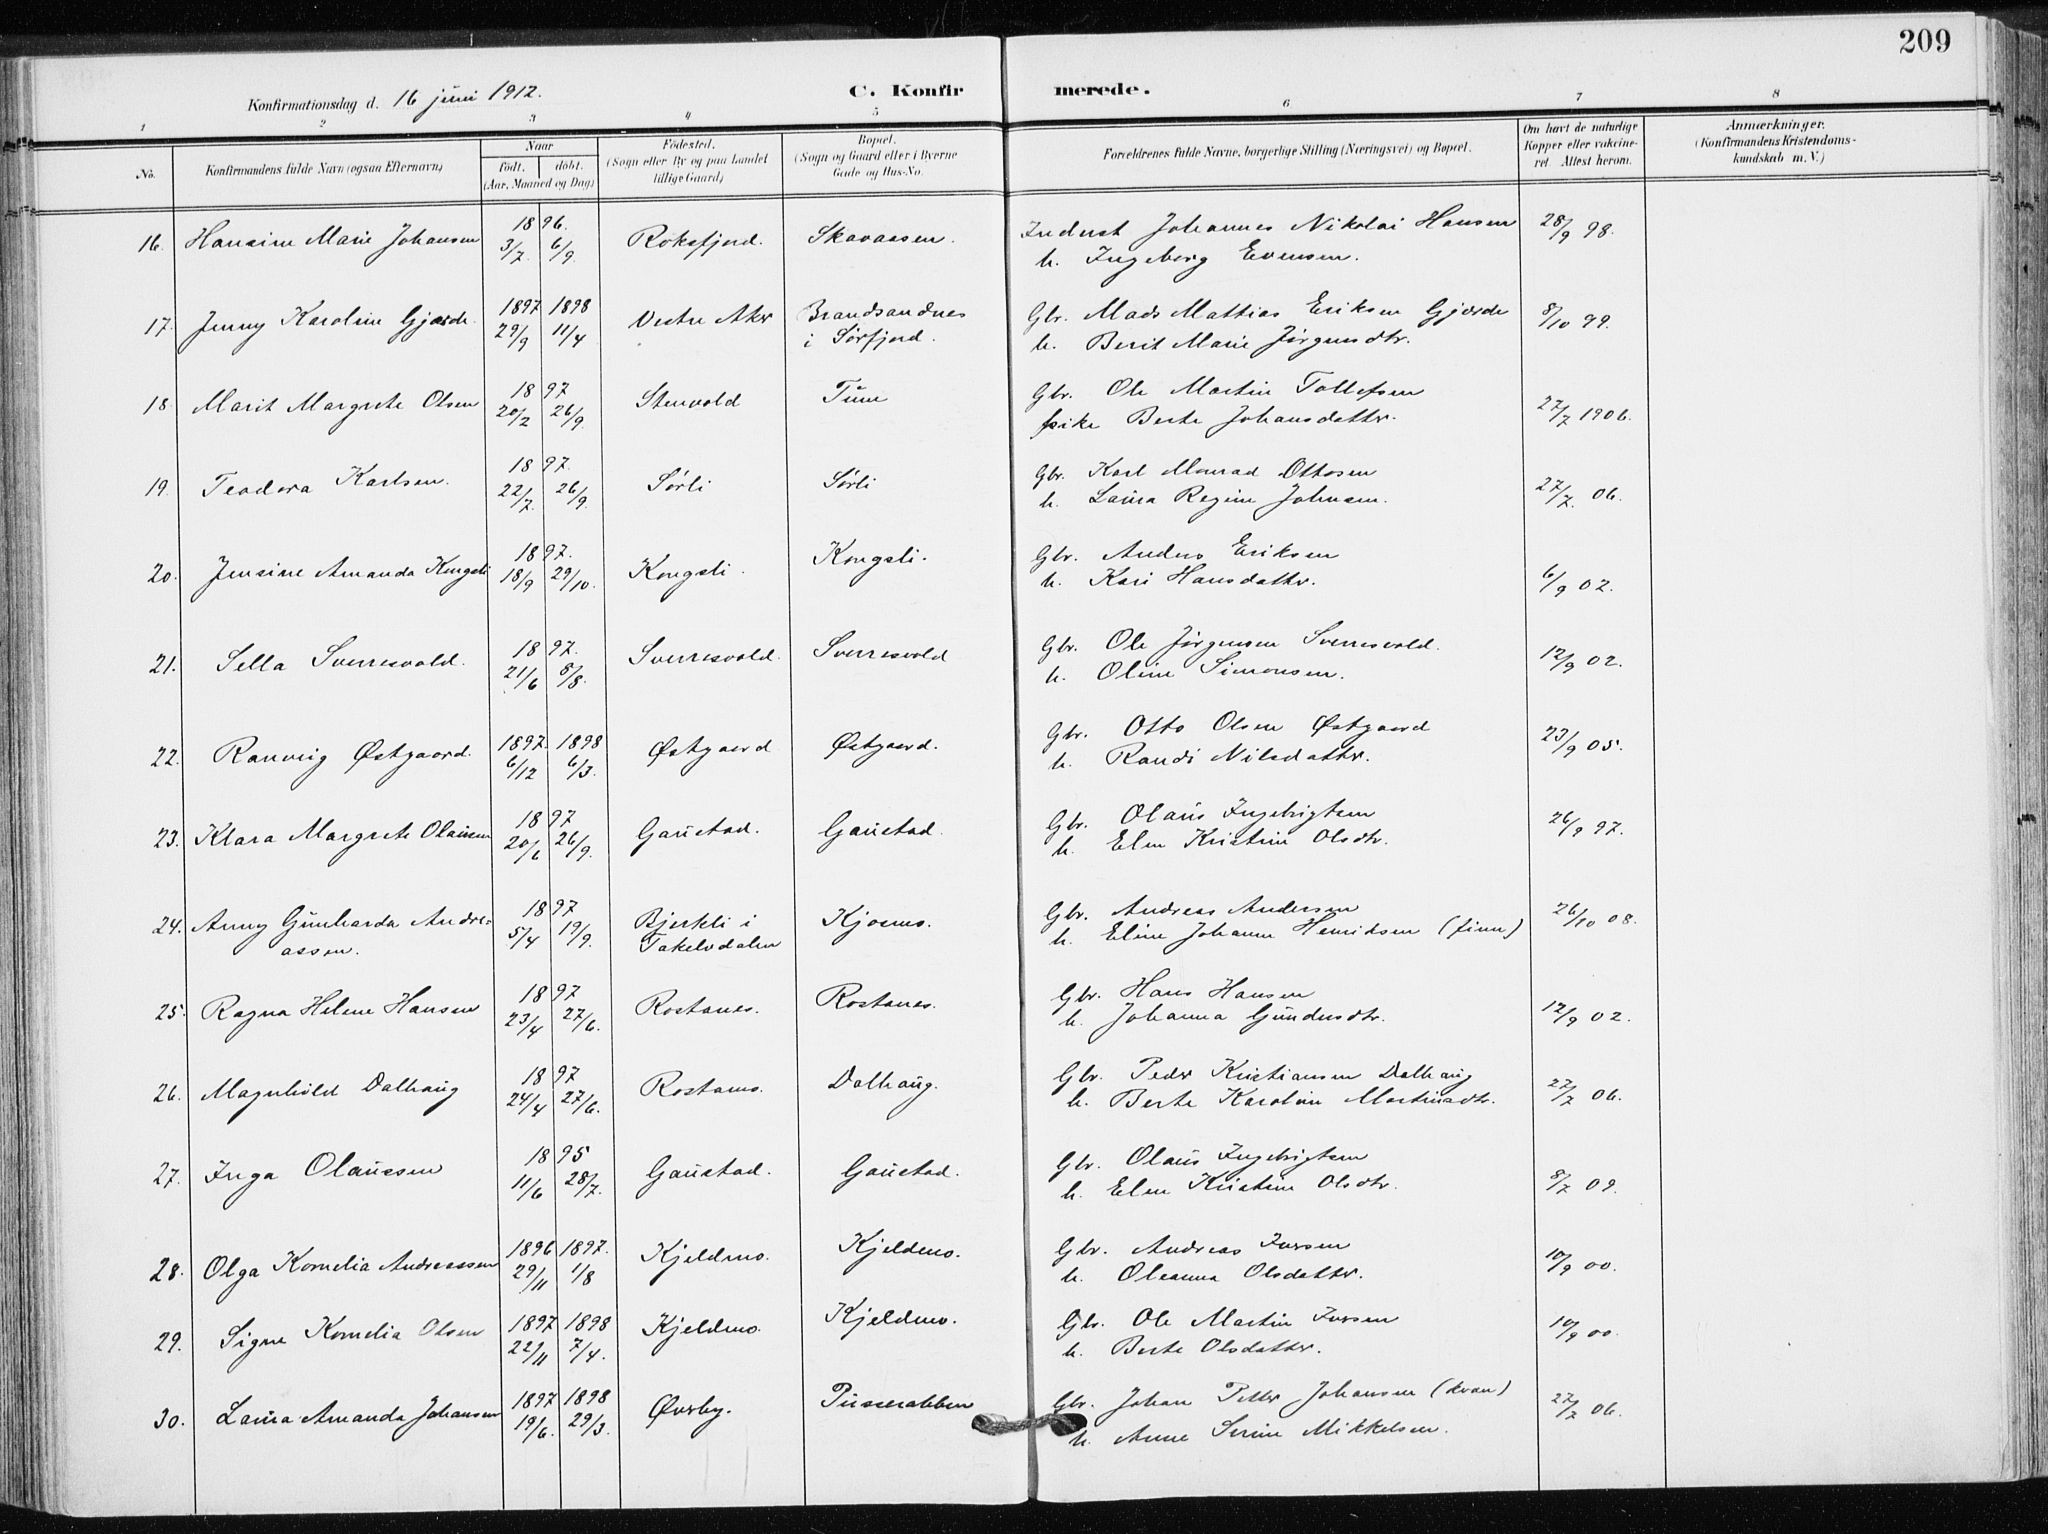 209
Konfirmationsdag d. 16 juni 1912. C. Konfirmerede.
1 2 3 4 5 6 7 8
No. Konfirmandens fulde Navn (ogsaa Efternavn) Naar født. døbt. (Aar, Maaned og Dag) Fødested. (Sogn eller By og paa Landet tillige Gaard) Bopæl. (Sogn og Gaard eller i Byerne Gade og Hus-No. Forældrenes fulde Navne, borgerlige Stilling (Næringsvei) og Bopæl. Om havt de naturlige Kopper eller vaccineret. Attest herom. Anmærkninger. (Konfirmandens Kristendomskundskab m. V.)
16. Hansine Marie Johansen 1896. 3/7 6/9. Roksfjord. Skavaasen. Inderst Johannes Nikolai Hansen 28/9 98.
h. Ingeborg Evensen.
17. Jenny Karoline Gjærde. 1897 29/9 1898 11/4 Vestre Aker Brandsandnes i Sørfjord. Gbr. Mads Mattias Eriksen Gjærde 8/10 99.
h. Berit Marie Jørgensdtr.
18. Marit Margrete Olsen 1897 20/2 26/9. Stenvold Tune Gbr. Ole Martin Tollefsen 27/7 1906.
pike Berte Johansdatter.
19. Teodora Karlsen. 1897. 22/7. 26/9. Sørli Sørli Gbr. Karl Monrad Ottosen 27/7. 06.
h. Laura Regine Johnsen.
20. Jensine Amanda Kongsli 1897. 18/9 29/10. Kongsli. Kongsli. Gbr. Anders Eriksen 6/9 02.
h. Kari Hansdatter.
21. Sella Sverresvold. 1897. 21/6 8/8. Sverresvold. Sverresvold Gbr. Ole Jørgensen Sverresvold. 12/9 02.
h. Oline Simonsen.
22. Ranveig Østgaard. 1897. 6/12 1898 6/3. Østgaard Østgaard. Gbr. Otto Olsen Østgaard 23/9 05.
h. Randi Nilsdatter.
23. Klara Margrete Olaussen 1897 20/6 26/9. Gaustad. Gaustad. Gbr. Olaus Ingebrigtsen 26/9 97.
h. Elen Kristine Olsdtr.
24. Anny Gunharda Andreassen. 1897 5/4 19/9. Bjerkli i Takelvdalen Kjosmo. Gbr. Andreas Andersen 26/10 08.
h. Eline Johanne Henriksen (finn)
25. Ragna Helene Hansen 1897 23/4 27/6. Rostanes. Rostanes. Gbr. Hans Hansen 12/9 02.
h. Johanna Gundersdtr.
26. Magnhild Dalhaug 1897 24/4 27/6. Rostamo. Dalhaug. Gbr. Peder Kristiansen Dalhaug 27/7 06.
h. Berte Karoline Martinsdtr.
27. Inga Olaussen 1895 11/6 28/7. Gaustad. Gaustad. Gbr. Olaus Ingebrigtsen 8/7 09.
h. Elen Kristine Olsdtr.
28. Olga Kornelia Andreassen 1896 29/11 1897. 1/8 Kjeldmo. Kjeldmo. Gbr. Andreas Iversen 10/9 00.
h. Oleanna Olsdatter.
29. Signe Kornelia Olsen 1897 22/11 1898 7/4. Kjeldmo. Kjeldmo. Gbr. Ole Martin Iversen 10/9 00.
h. Berte Olsdatter.
30. Laura Amanda Johansen 1897 19/6. 1898 29/3. Øvrby. Gbr. Johan Petter Johansen (kvæn) 27/7 06.
h. Anne Serine Mikkelsen.